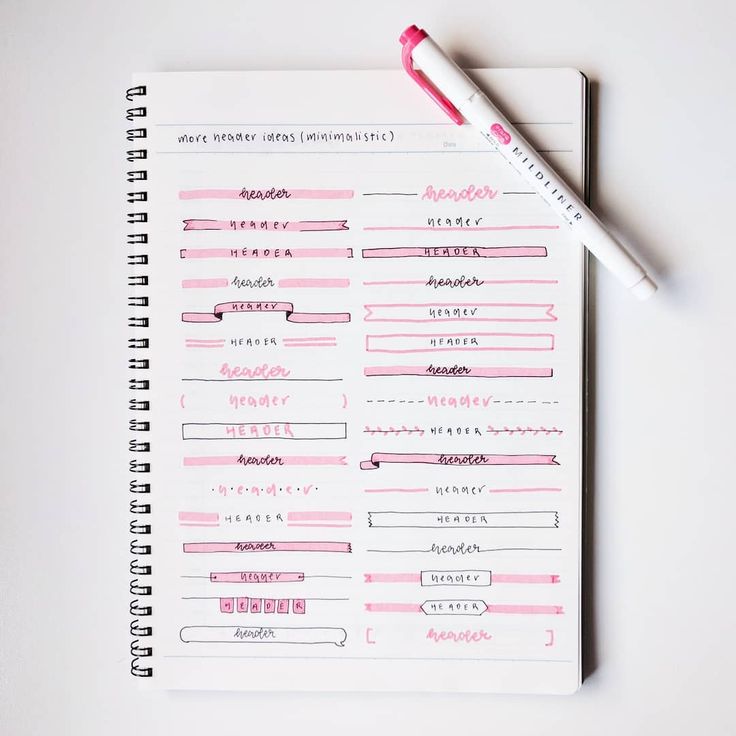 more header ideas (minimalistic)
Date
header
header
HEADER
header
header
HEADER
header
( header )
HEADER
header
·h·e·a·d·e·r·
HEADER
header
header
HEADER
header
header
header
HEADER
header
header
HEADER
header
header
HEADER
header
header
HEADER
header
header
HEADER
[ header ]
MILDLINER